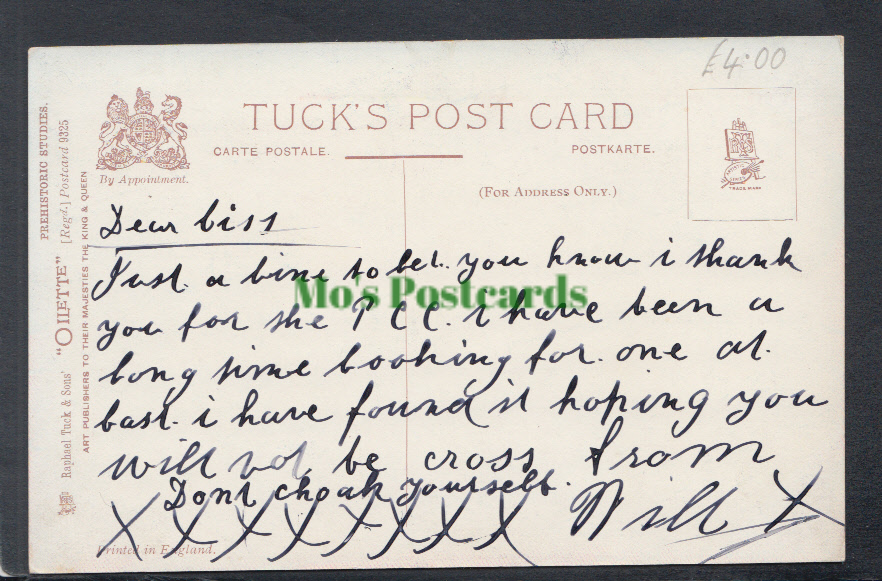 £4.00
TUCK'S POST CARD
CARTE POSTALE.
POSTKARTE.
By Appointment.
(FOR ADDRESS ONLY.)
TRADE MARK
PREHISTORIC STUDIES.
Raphael Tuck & Sons' "OILETTE" [Regd.] Postcard 9325
ART PUBLISHERS TO THEIR MAJESTIES THE KING & QUEEN
Dear Liss
Just a line to let you know i thank
you for the P C C. i have been a
long time looking for one at
last i have found it hoping you
will not be cross from
Dont choak yourself. Will X
X X X X X X X X
Printed in England.
Mo's Postcards